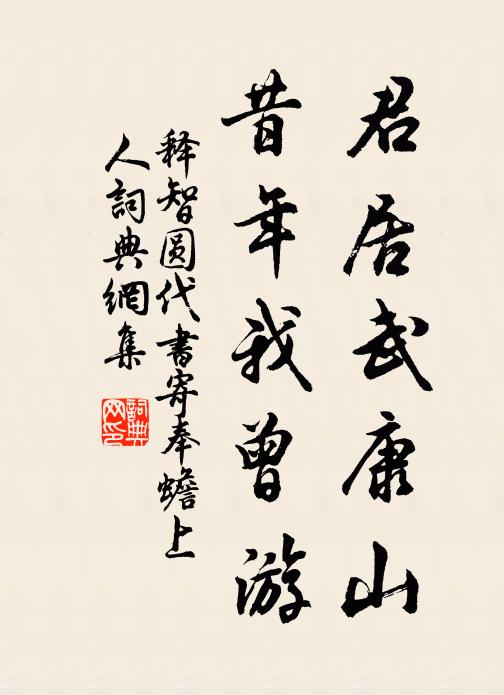 君居武康山
昔年我曾游
释智圆代书寄奉蟾上
人詞典網集
詞典
网印